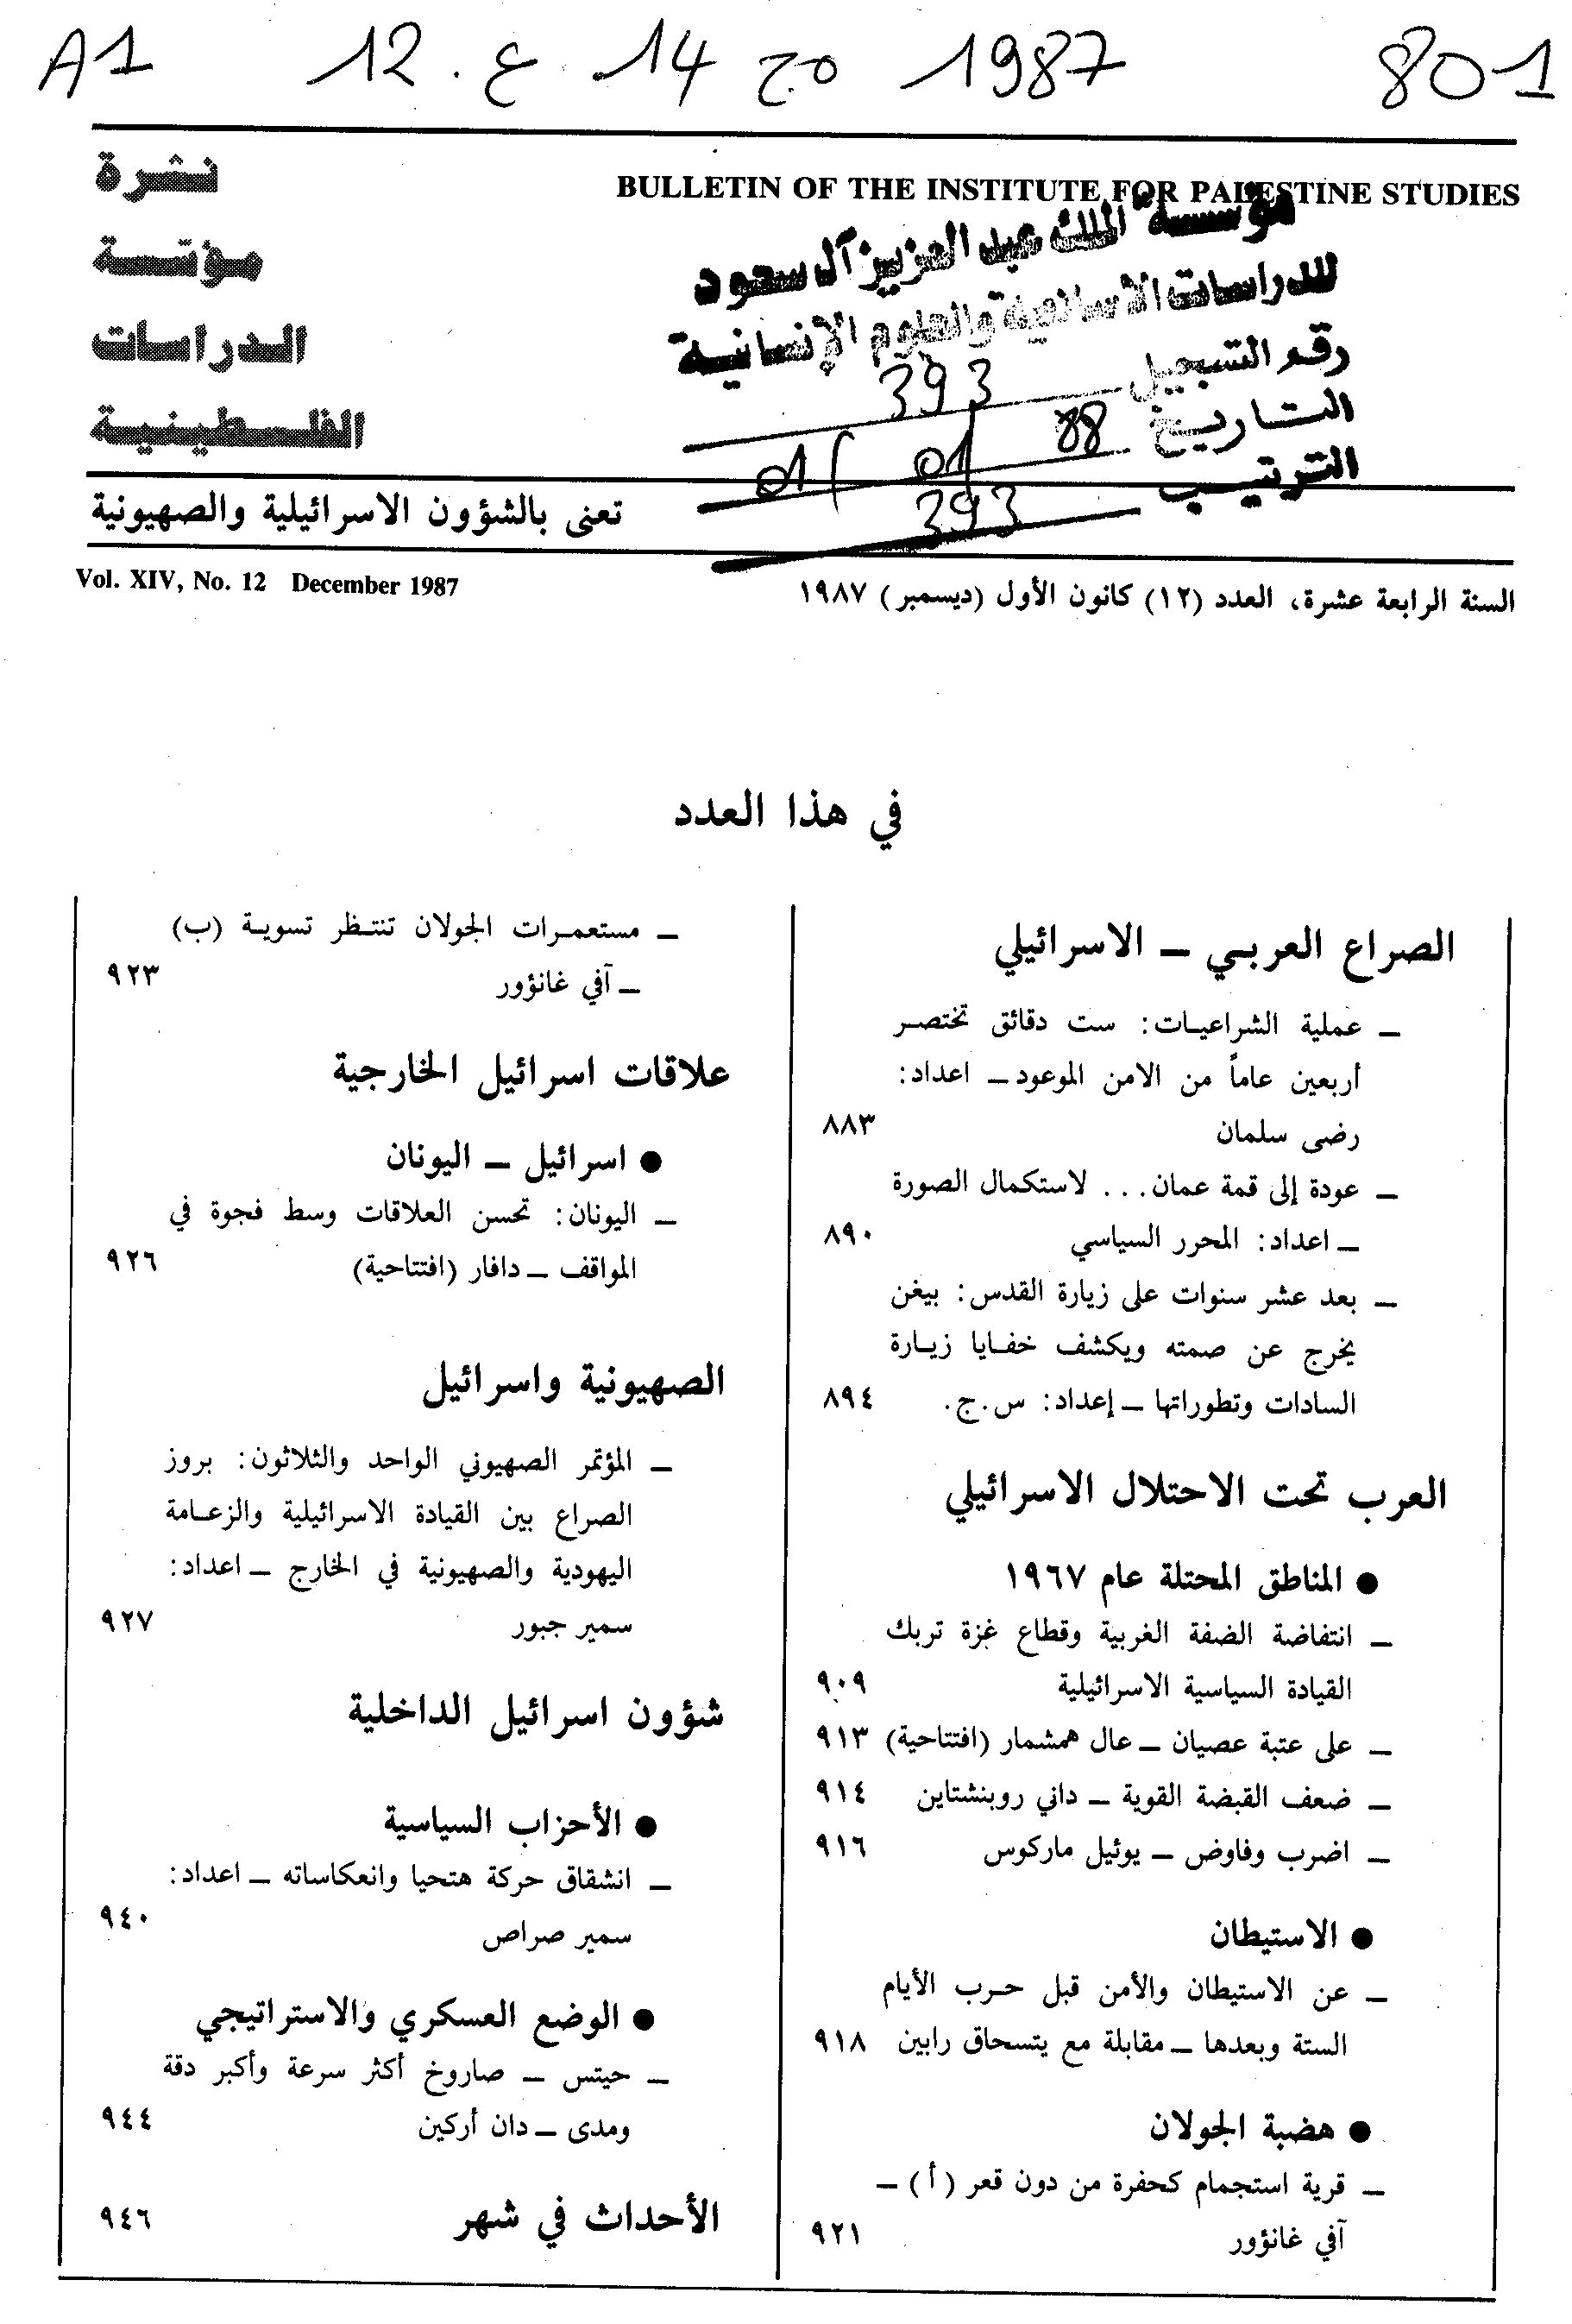 A1 12 ع. 14 مج 1987 801
BULLETIN OF THE INSTITUTE FOR PALESTINE STUDIES
نشرة
مؤسسة
الدراسات
الفلسطينية
مؤسسة الملك عبد العزيز آل سعود
للدراسات الاسلامية والعلوم الإنسانية
رقم التسجيل 393
التاريخ 88 01 / 01
الترتيب 393
تعنى بالشؤون الاسرائيلية والصهيونية
Vol. XIV, No. 12 December 1987
السنة الرابعة عشرة، العدد (١٢) كانون الأول (ديسمبر) ١٩٨٧
في هذا العدد
الصراع العربي ــ الاسرائيلي
ــ عملية الشراعيات: ست دقائق تختصر
أربعين عاماً من الامن الموعود ــ اعداد:
رضى سلمان ٨٨٣
ــ عودة إلى قمة عمان... لاستكمال الصورة
ــ اعداد: المحرر السياسي ٨٩٠
ــ بعد عشر سنوات على زيارة القدس: بيغن
يخرج عن صمته ويكشف خفايا زيارة
السادات وتطوراتها ــ إعداد: س.ج. ٨٩٤
العرب تحت الاحتلال الاسرائيلي
● المناطق المحتلة عام ١٩٦٧
ــ انتفاضة الضفة الغربية وقطاع غزة تربك
القيادة السياسية الاسرائيلية ٩٠٩
ــ على عتبة عصيان ــ عال همشمار (افتتاحية) ٩١٣
ــ ضعف القبضة القوية ــ داني روبنشتاين ٩١٤
ــ اضرب وفاوض ــ يوئيل ماركوس ٩١٦
● الاستيطان
ــ عن الاستيطان والأمن قبل حرب الأيام
الستة وبعدها ــ مقابلة مع يتسحاق رابين ٩١٨
● هضبة الجولان
ــ قرية استجمام كحفرة من دون قعر (أ) ــ
آفي غانؤور ٩٢١
ــ مستعمرات الجولان تنتظر تسوية (ب)
ــ آفي غانؤور ٩٢٣
علاقات اسرائيل الخارجية
● اسرائيل ــ اليونان
ــ اليونان: تحسن العلاقات وسط فجوة في
المواقف ــ دافار (افتتاحية) ٩٢٦
الصهيونية واسرائيل
ــ المؤتمر الصهيوني الواحد والثلاثون: بروز
الصراع بين القيادة الاسرائيلية والزعامة
اليهودية والصهيونية في الخارج ــ اعداد:
سمير جبور ٩٢٧
شؤون اسرائيل الداخلية
● الأحزاب السياسية
ــ انشقاق حركة هتحيا وانعكاساته ــ اعداد:
سمير صراص ٩٤٠
● الوضع العسكري والاستراتيجي
ــ حيتس ــ صاروخ أكثر سرعة وأكبر دقة
ومدى ــ دان أركين ٩٤٤
الأحداث في شهر ٩٤٦